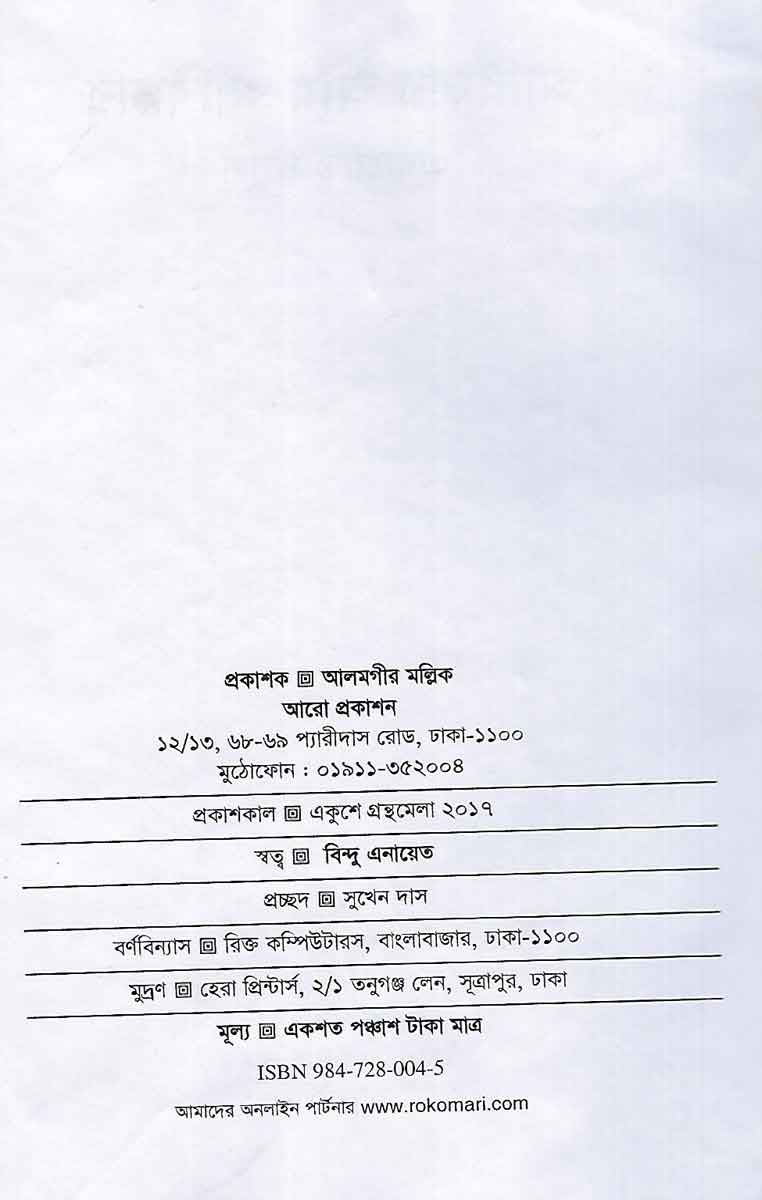 প্রকাশক 回 আলমগীর মল্লিক
আরো প্রকাশন
১২/১৩, ৬৮-৬৯ প্যারীদাস রোড, ঢাকা-১১০০
মুঠোফোন : ০১৯১১-৩৫২০০৪
প্রকাশকাল 回 একুশে গ্রন্থমেলা ২০১৭
স্বত্ব 回 বিন্দু এনায়েত
প্রচ্ছদ 回 সুখেন দাস
বর্ণবিন্যাস 回 রিক্ত কম্পিউটারস, বাংলাবাজার, ঢাকা-১১০০
মুদ্রণ 回 হেরা প্রিন্টার্স, ২/১ তনুগঞ্জ লেন, সূত্রাপুর, ঢাকা
মূল্য 回 একশত পঞ্চাশ টাকা মাত্র
ISBN 984-728-004-5
আমাদের অনলাইন পার্টনার www.rokomari.com